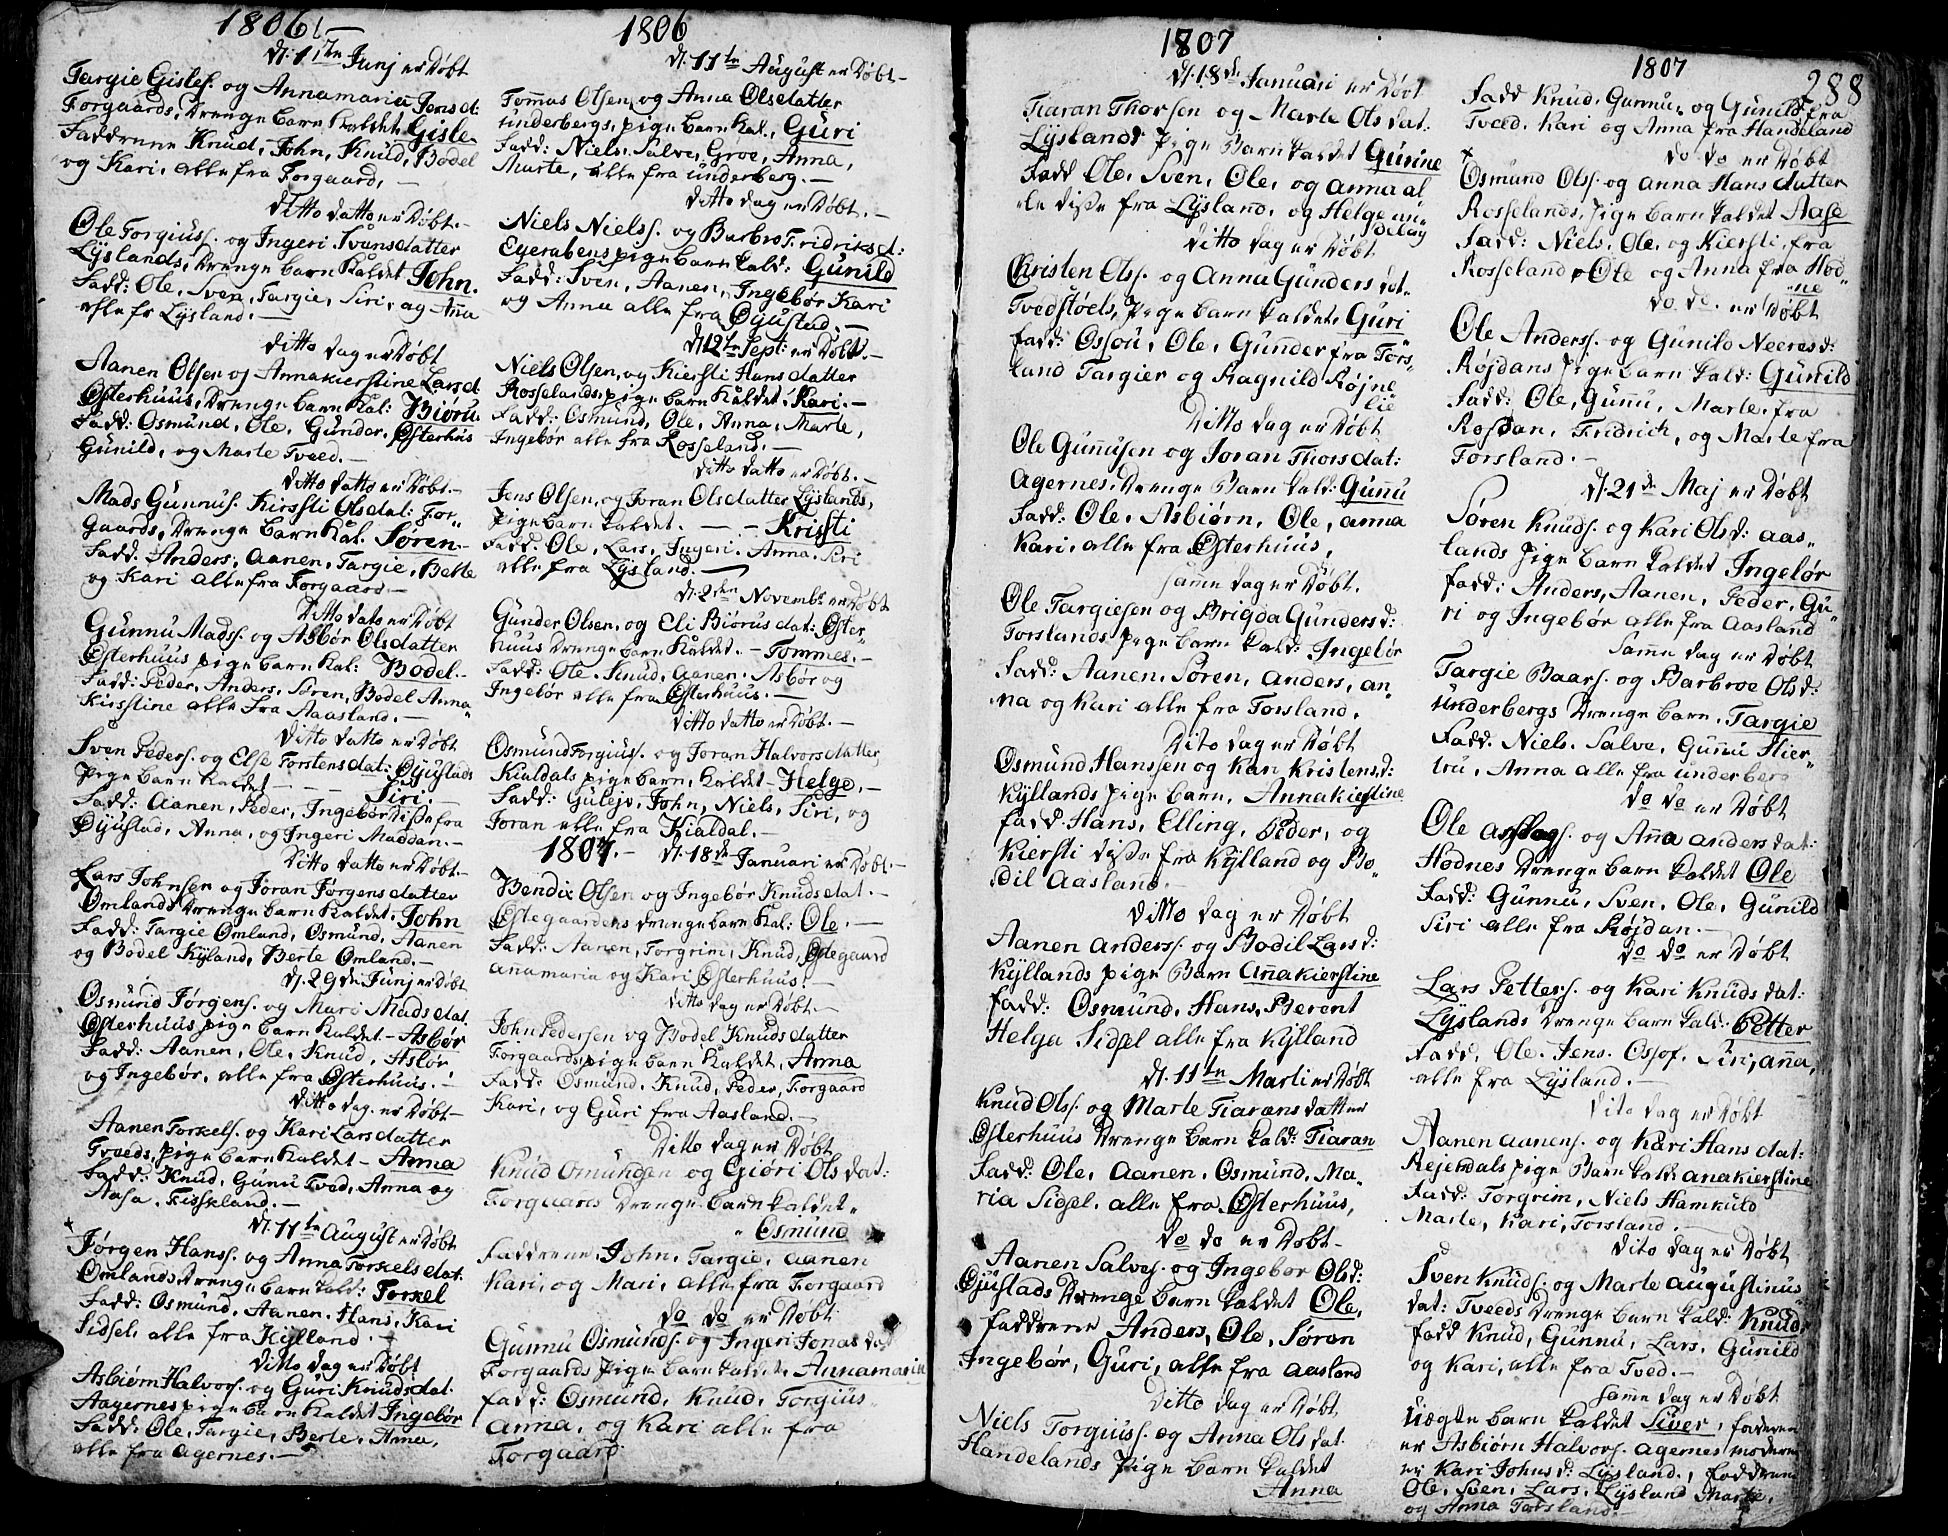 1806
d: 17de Junj er Døbt
Targie Gisles. og Annamaria Jonsd:
Forgaards, Drenge barn Kaldet, Gisle
Faddrene Knud, John, Knud, Bodel
og Kari, alle fra Forgaard, —
Ditto datto er Døbt. —
Ole Torgiuss. og Ingeri Svansdatter
Lyslands, Drenge barn Kaldet John.
Fadd: Ole, Sven, Targie, Siri, og Aña
alle fr Lysland. —
ditto dag er Døbt
Aanen Olsen og Annakierstine Larsd
Østerhuus, Drenge barn Kal: Biøru.
Fadd: Osmund, Ole, Gunder, Østerhus
Gunild, og Marte Tveed. —
ditto datto er Døbt. —
Mads Gunnus. Kirssti Olsdat: For-
gaards, Drenge barn Kal. Søren. —
Fadd: Anders, Aanen, Targie, Belte
og Kari alle fra Forgaard —
Ditto dato er Døbt
Gunnu Madss. og Asbør Olsdatter
Østerhuus pige barn Kal: Bodel. —
Fadd: Peder, Anders, Søren, Bodel Anna
Kirsstine alle fra Aaasland. —
ditto datto er Døbt
Sven Peders. og Else Torstensdat: Øyustads
pige barn Kaldet — — Siri. —
Fadd: Aanen, Peder, Ingebør disse fra
Øyustad, Anna, og Ingeri Maddan. —
ditto datto er Døbt. —
Lars Johnsen og Joran Jørgensdatter
Omlands Drenge barn Kaldet, John
Fadd: Targie Omland, Osmund, Aanen
og Bodel Kyland, Berte Omland. —
d. 29de Junj er Døbt
Osmund Jørgens. og Mari Madsdat.
Østerhuus pige barn Kaldet — Asbør
Fadd: Aanen, Ole, Knud, Asbør
og Ingebør, alle fra Østerhuus. —
ditto dag er Døbt —
Aanen Torkels. og Kari Larsdatter
Tveeds, pige barn Kaldet — Anna
Fadd: Knud, Gunu Tved, Anna og
Aasa, Fisskland. —
d. 11te August er Døbt
Jørgen Hanss. og Anna Torkelsdat.
Omlands Drenge barn Kald: Torkel
Fadd: Osmund, Aanen, Hans, Kari
Sidsel, alle fra Kylland. —
ditto dag er Døbt
Asbiørn Halvors. og Guri Knudsdat.
Aagernes pige barn Kaldet Ingebør
Fadd: Ole, Targie, Berte, Anna,
alle fra Agernes. —
1806
d. 11te August er Døbt —
Tommas Olsen, og Anna Olsdatter
Underbergs, pige barn Kal, Guri
Fadd: Niels, Salve, Groe, Anna,
Marte, alle fra Underberg. —
ditto dag er Døbt. —
Niels Nielss. og Barbro Fridriksd:
Egerabens pige barn Kald: Gunild
Fadd: Sven, Aanen, Ingebør Kari
og Anna alle fra Øyustad. —
d. 12te Sept: er Døbt. —
Niels Olsen, og Kiersti Hansdatter
Rosselands, pige barn Kaldet, Kari. —
Fadd: Osmund, Ole, Anna, Marte,
Ingebør alle fra Rosseland. —
ditto datto er Døbt. —
Jens Olsen, og Joran Olsdatter Lyslands,
Pige barn Kaldet. — — Kirsti
Fadd: Ole, Lars, Ingeri, Anna, Siri
alle fra Lysland. —
d. 2den Novembr er Døbt
Gunder Olsen, og Eli Biørusdat: Øster-
huus Drenge barn Kaldet. — Tommes. —
Fadd: Ole, Knud, Aanen, Asbør og
Ingebør alle fra Østerhuus. —
ditto datto er Døbt. —
Osmund Torgiuss. og Joran Halvorsdatter
Kialdals pige barn, Kaldet — Helge, —
Fadd: Gulejv, John, Niels, Siri, og
Joran alle fra Kialdal. —
1807. — d. 18de Januari er Døbt. —
Bendix Olsen og Ingebør Knudsdat. —
Østegaardens drenge barn Kal: Ole. —
Fadd: Aanen, Torgrim, Knud, Østegaard
anamaria og Kari Østerhuus. —
ditto dag er Døbt. —
John Pedersen og Bodel Knudsdatter
Forgaards, pige barn Kaldet, Anna
Fadd: Osmund, Knud, Peder, Forgaard
Kari, og Guri fra Aasland. —
Ditto dag er Døbt
Knud Omundsen og Giøri Olsdat:
Forgaards Drenge barn Kaldet
Osmund
Faddrene John, Targie, Aanen
Kari, og Mari, alle fra Forgaard
do do er Døbt
Gunnu Osmunds. og Ingeri Jonasdat
Forgaards pige barn Kaldet, Annamaria
fadd: Osmund, Knud, Torgius
Anna, og Kari alle fra
Forgaard
1807
d. 18de Januari er Døbt
Tiaran Thorsen og Marte Olsdat:
Lyslands Pige Barn Kaldet Gurine
Fadd Ole, Sven, Ole, og anna al-
le disse fra Lysland, og Helge un-
deløy
ditto dag er Døbt
Kristen Olss. og Anna Gundersdot.
Tvedstøels, Pige barn Kaldet, Guri
Fadd: Ossou, Ole, Gunder fra Tors-
land Targier og Ragnild Røjne
lie
Ditto dag er Døbt
Ole Gunusen og Joran Thorsdat:
Agernes, Drenge Barn Kald: Gunu
Fadd: Ole, Asbiørn, Ole, anna
Kari, alle fra Østerhuus,
samme dag er Døbt.
Ole Targiesen og Brigda Gundersd:
Torslands pige barn Kald: Ingebør
Fadd: Aanen, Søren, Anders, an-
na og Kari alle fra Torsland.
Dito dag er Døbt
Osmund Hanssen og Kari Kristensd:
Kyllands pige barn, Annakierstine
fadd: Hans, Elling, Peder, og
Kiersti disse fra Kylland og Bo-
dil Aasland. —
ditto dag er Døbt
Aanen Anderss. og Bodil Larsd:
Kyllands pige Barn Añakierstine
Fadd: Osmund, Hans, Berent
Helga Sidsel alle fra Kylland
d. 11te Marti er Døbt
Knud Olss. og Marte Tiaransdatter
Østerhuus Drenge barn Kald: Tiaran
Fadd: Ole, Aanen, Osmund, Ma-
ria Sidsel, alle fra Østerhuus,
do do er Døbt —
Aanen Salves. og Ingebør Olsd:
Øjustads Drenge barn Kaldet Ole,
faddrene Anders, Ole, Søren
Ingebør, Guri, alle fra Aasland
Ditto dag er Døbt
Niels Torgiuss. og Anna Olsdat
Handelands Pige barn Kaldet
Anna
1807
288
Fadd Knud, Gunnu, og Gunild fra
Tveed, Kari og Anna fra Handeland
do do er Døbt
Osmund Olss. og anna Hansdatter
Rosselands, pige barn Kaldet Aase
Fadd: Niels, Ole, og Kiersti, fra
Rosseland Ole og Anna fra Hod-
ne
do do. er Døbt
Ole Anderss. og Gunild Neeresd:
Røjdans pige barn Kald: Gunild
Fadd: Ole, Gunu, Marte, fra
Rojdan, Fridrich, og Marte fra
Torsland. —
d. 21de Maj er Døbt
Søren Knuds. og Kari Olsd: Aas-
lands pige barn Kaldet Ingebør
Fadd: Anders, Aanen, Peder, Gu-
ri og Ingebør alle fra Aasland
Samme dag er Døbt
Targie Baars. og Barbroe Olsd:
Underbergs Drenge barn, Targie
Fadd: Niels, Salve, Gunu Hier-
tru, Anna alle fra Underberg
do do er Døbt
Ole Aslags. og Aña Andersdat:
Hodnes Drenge barn Kaldet Ole
Fadd: Gunnu, Sven, Ole, Gunild
Siri alle fra Røjdan. —
do do er Døbt
Lars Petters. og Kari Knudsdat:
Lyslands Drenge barn Kald: Petter
Fadd, Ole, Jens, Ossof, Siri, aña,
alle fra Lysland. —
Dito dag er Døbt
Aanen Aanens. og Kari Hansdat:
Rejerdals pige Barn Kald: anakierstine
Fadd: Torgrim, Niels Hamkuld
Marte, Kari, Torsland. —
Dito dag er Døbt
Sven Knuds. og Marte Augustinus
dat: Tveeds Drenge barn Kald: Knud,
Fadd Knud, Gunnu, Lars, Gunild
og Kari, alle fra Tved. —
samme dag er Døbt
Uægte barn Kaldet Siver, faderen
er Asbiørn Halvors. Agernes moderen
er Kari Johnsd: Lysland, faddrene
Ole, Sven, Lars, Lysland Marte,
og Anna Torsland.